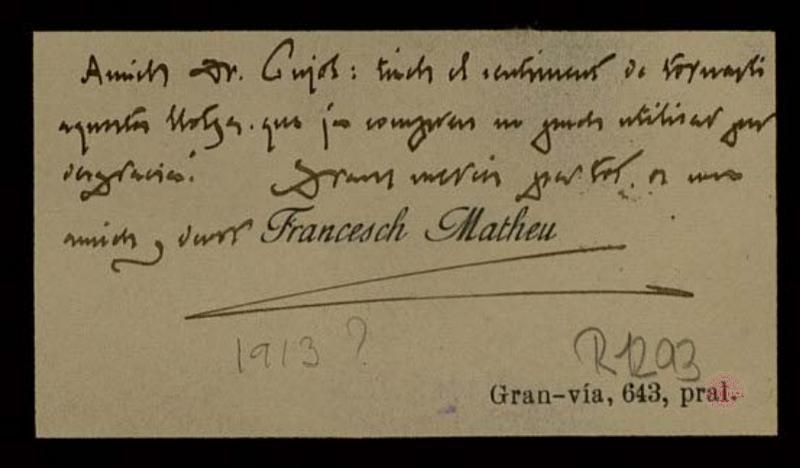 Amich Dr. Pujol: tinch el sentiment de tornarli
aquesta que ja compren no puch utilisar per
desgracia! Grans mercés per tot. Son
amich y devot Francesch Matheu
1913?
R1293
Gran-vía, 643, pral.